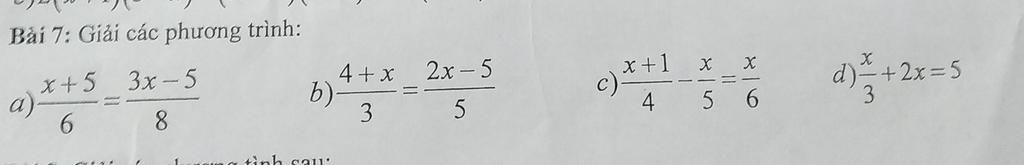 Bài 7: Giải các phương trình:
a) \frac{x+5}{6} = \frac{3x-5}{8} b) \frac{4+x}{3} = \frac{2x-5}{5} c) \frac{x+1}{4} - \frac{x}{5} = \frac{x}{6} d) \frac{x}{3} + 2x = 5
tình sau: